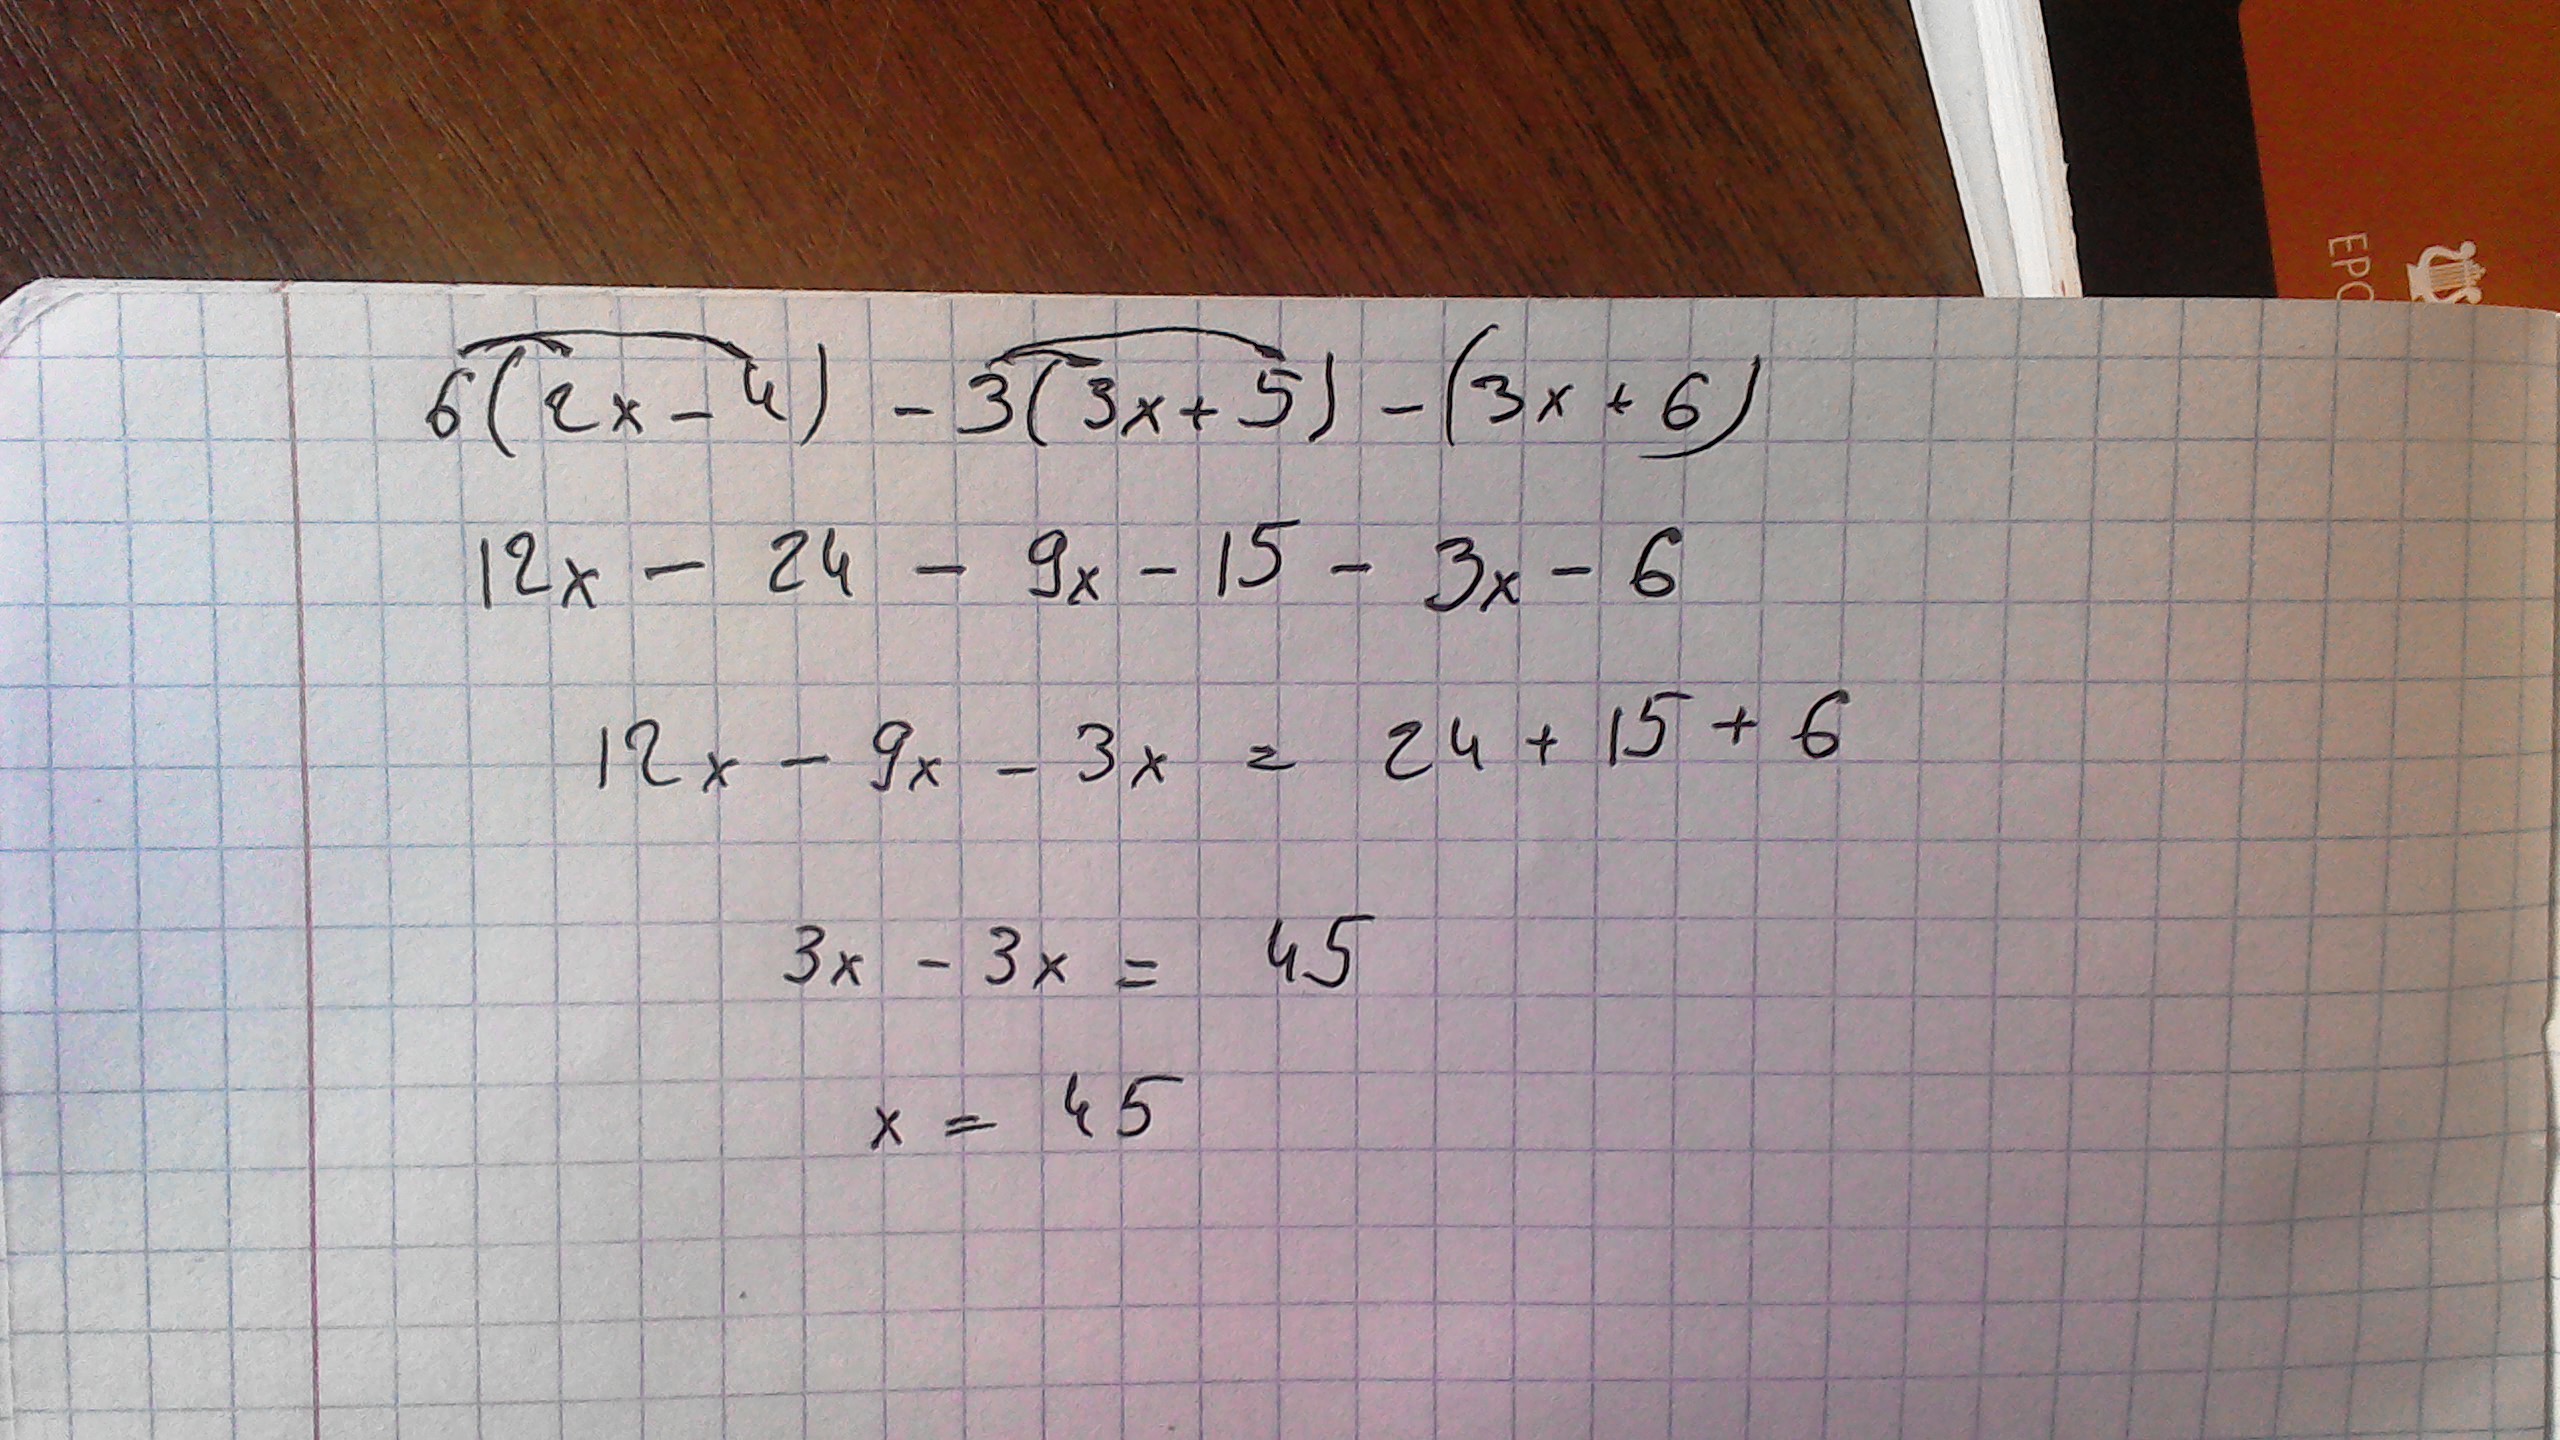 6(2x - 4) - 3(3x + 5) - (3x + 6)
12x - 24 - 9x - 15 - 3x - 6
12x - 9x - 3x = 24 + 15 + 6
3x - 3x = 45
x = 45